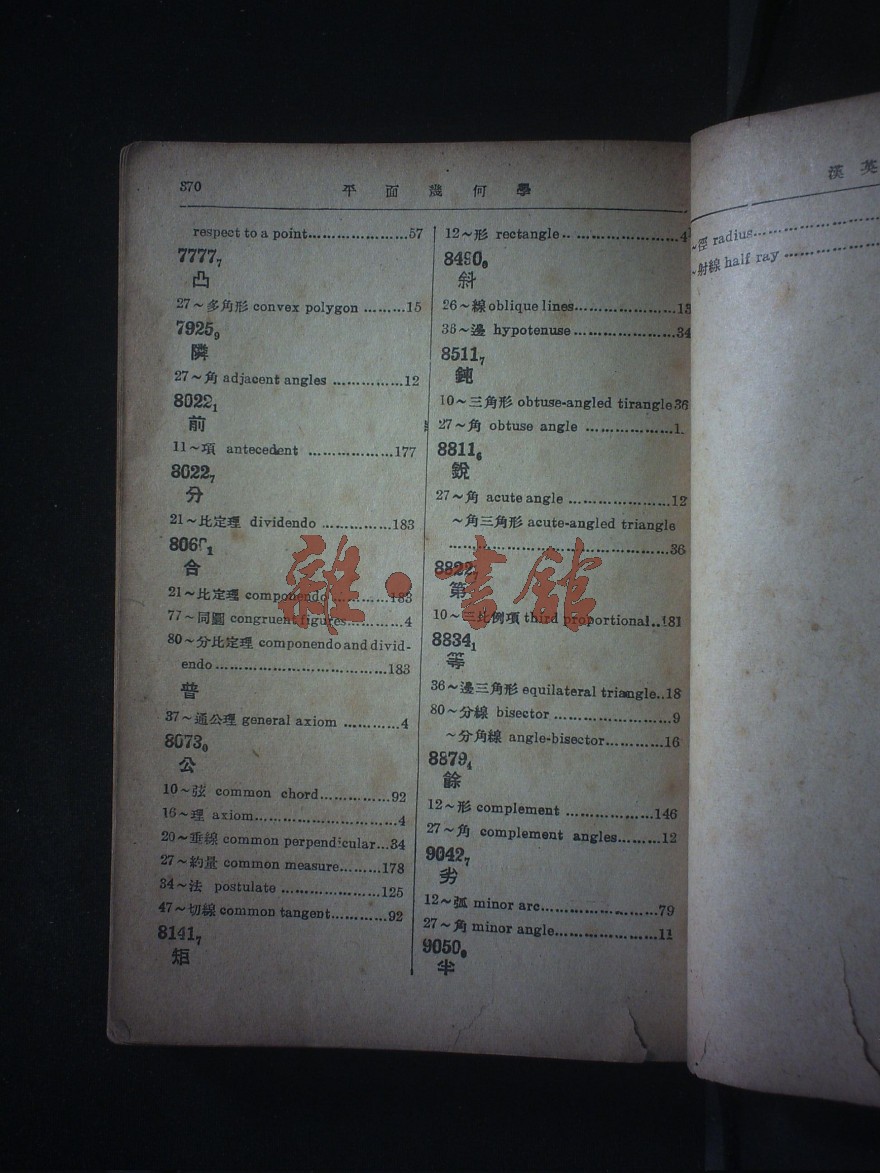 370
平面幾何學
respect to a point.....................57
7777₇
凸
27～多角形 convex polygon .........15
7925₉
隣
27～角 adjacent angles ...............12
8022₁
前
11～項 antecedent ..................177
8022₇
分
21～比定理 dividendo ...............183
合
21～比定理 componendo ............183
77～同圖 congruent figures............4
80～分比定理 componendo and divid-
endo....................................183
普
37～通公理 general axiom ............4
8073₀
公
10～弦 common chord...............92
16～理 axiom..............................4
20～垂線 common perpendicular...34
27～約量 common measure........178
34～法 postulate .....................125
47～切線 common tangent............92
8141₇
矩
12～形 rectangle.. ......................4
斜
26～線 oblique lines.....................13
36～邊 hypotenuse ......................34
8511₇
鈍
10～三角形 obtuse-angled tirangle 36
27～角 obtuse angle ..................1
8811₆
銳
27～角 acute angle ......................12
～角三角形 acute-angled triangle
................................................36
8822
第
10～三比例項 third proportional..181
8834₁
等
36～邊三角形 equilateral triangle..18
80～分線 bisector .........................9
～分角線 angle-bisector............16
8879₄
餘
12～形 complement ..................146
27～角 complement angles.........12
9042₇
劣
12～弧 minor arc........................79
27～角 minor angle.....................11
9050₀
半
漢英
～徑 radius..........................
～射線 half ray ....................
雜·書館